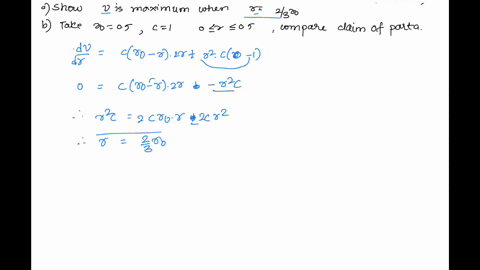 a) Show v is maximum when r = 2/3 r0
b) Take r0 = 0.5 , c = 1 0 ≤ r ≤ 0.5 , compare claim of part a.
dv/dr = c(r0 - r).2r + r². c(0 - 1)
0 = c(r0 - r).2r - r²c
∴ r²c = 2cr0.r - 2cr²
∴ r = 2/3 r0